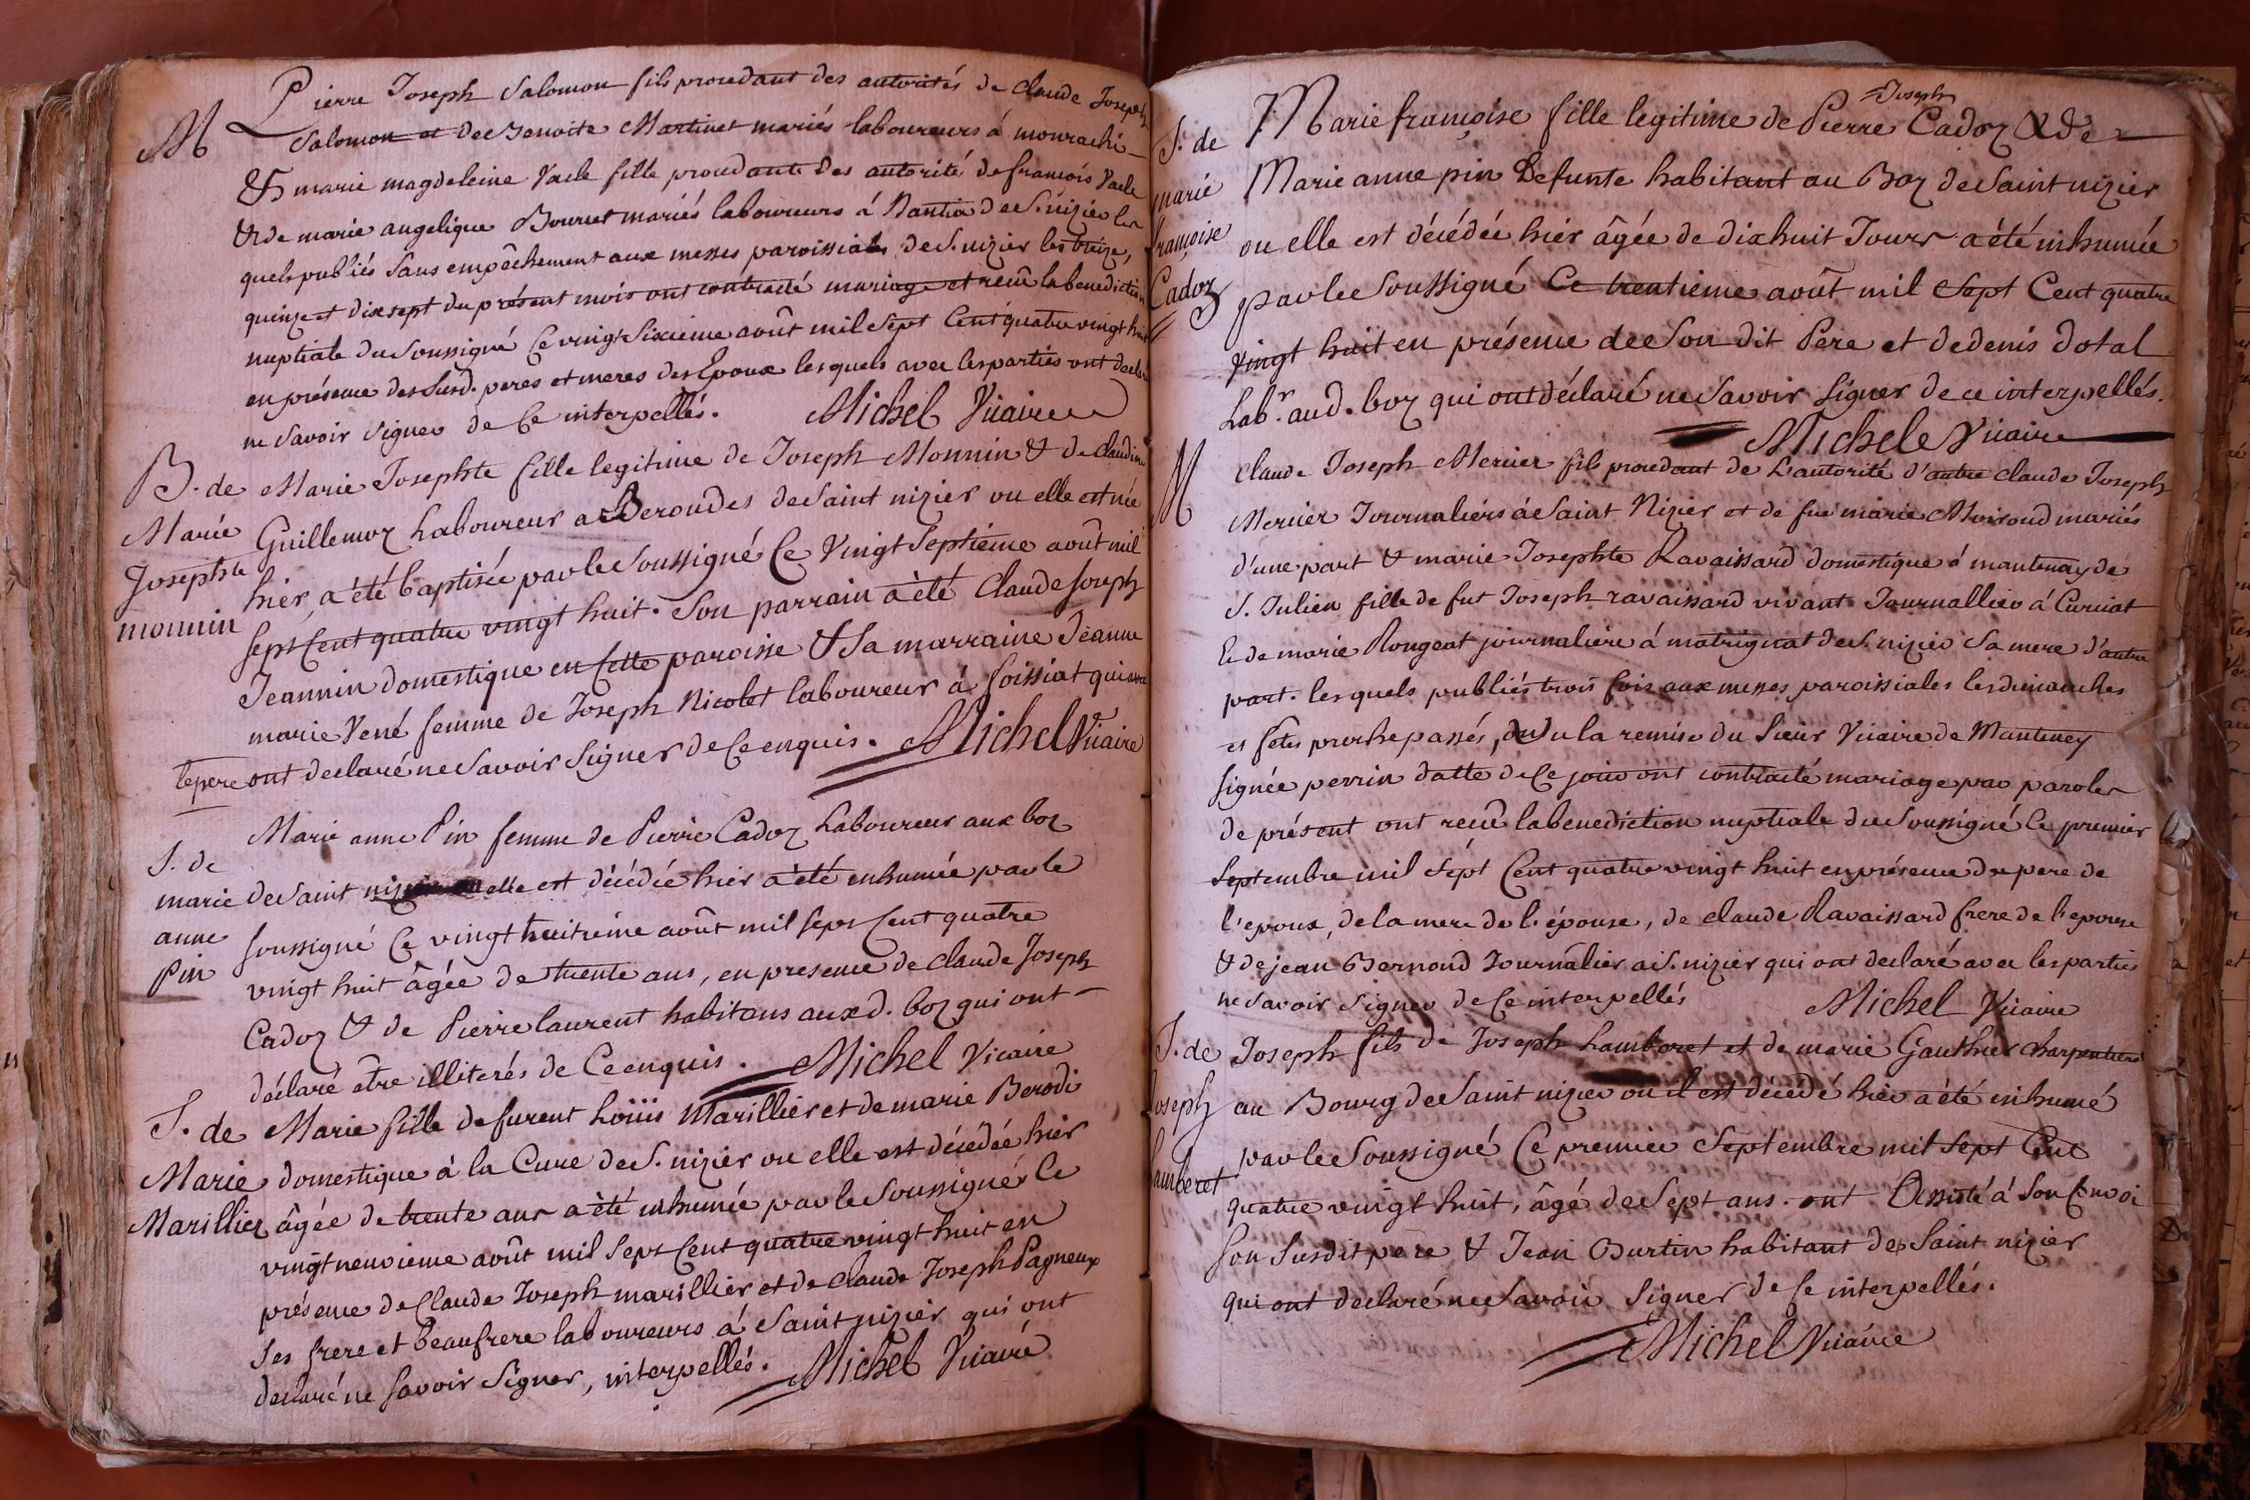 M
Pierre Joseph Salomon fils procedant des autorités de Claude Joseph
Salomon et de Benoite Martinet mariés laboureurs à mourachi
& marie magdeleine Vacle fille procedante des autorité de françois Vacle
& de marie angelique Bourcet mariés laboureurs á Nantia de S. nizier les
quels publiés sans empêchement aux messes paroissiales de S. nizier les treize,
quinze et dix sept du présent mois ont contracté mariage et recû la benediction
nuptiale du soussigné Ce vingt Sixieme août mil Sept Cent quatre vingt huit
en présence des susd. peres et meres des Epoux les quels avec les parties ont declaré
ne savoir signer de Ce interpellés. Michel Vicaire
B. de
Marie
Josephte
monnin
Marie Josephte fille legitime de Joseph Monnin & de Claudine
Guillemoz Laboureur a Beroudes de Saint nizier ou elle est née
hier, a été baptisée par le Soussigné Ce Vingt Septiéme août mil
sept Cent quatre vingt huit. Son parrain a été Claude Joseph
Jeannin domestique en Cette paroisse & Sa marraine Jeanne
marie Vené femme de Joseph Nicolet laboureur á Foissiat qui avec
le pere ont declaré ne Savoir Signer de Ce enquis. Michel Vicaire
S. de
marie
anne
Pin
Marie anne Pin femme de Pierre Cadoz Laboureur aux boz
de Saint nizier ou elle est décédée hier a été inhumée par le
soussigné Ce vingt huitiéme août mil sept Cent quatre
vingt huit âgée de trente ans, en presence de Claude Joseph
Cadoz & de Pierre laurent habitans aux d. boz qui ont
déclaré etre illiterés de Ce enquis. Michel Vicaire
S. de
Marie
Marillier
Marie fille de furent Loüis Marillier et de marie Berodi
domestique à la Cure de S. nizier ou elle est décédée hier
âgée de trente ans a été inhumée par le Soussigné Ce
vingt neuvieme août mil sept Cent quatre vingt huit en
présence de Claude Joseph marillier et de Claude Joseph Pagneux
Ses frere et beaufrere laboureurs á Saint nizier qui ont
declaré ne Savoir Signer, interpellés. Michel Vicaire
S. de
marie
françoise
Cadoz
Joseph
Marie françoise fille legitime de Pierre Cadoz & de
Marie anne pin Defunte habitant au Boz de Saint nizier
ou elle est décédée hier âgée de dix huit Jours a été inhumée
par le Soussigné Ce trentieme août mil Sept Cent quatre
vingt huit en présence de Son dit Pere et de denis dotal
Lab.r aud. boz qui ont déclaré ne Savoir Signer de ce interpellés.
Michel Vicaire
M
Claude Joseph Mercier fils procedant de L'autorité d'autre Claude Joseph
Mercier Journaliers á Saint Nizier et de fue marie Moiroud mariés
d'une part & marie Josephte Ravaissard domestique á mantenay de
S. Julien fille de fut Joseph ravaissard vivant Journallier á Curciat
& de marie Rongeat journaliere á matrignat de S. nizier Sa mere d'autre
part. les quels publiés trois fois aux messes paroissiales les dimanches
et fetes proche passés, vu la remise du Sieur Vicaire de Manteney
signée perrin datte de Ce jour ont contracté mariage par paroles
de présent ont recû la benediction nuptiale du Soussigné Ce premier
Septembre mil Sept Cent quatre vingt huit en présence du pere de
l'epoux, de la mere de l'épouse, de Claude Ravaissard frere de l'epouse
& de jean Bernond Journalier a S. nizier qui ont declaré avec les parties
ne Savoir Signer de Ce interpellés Michel Vicaire
S. de
Joseph
Lamberet
Joseph fils de Joseph Lamberet et de marie Gauthier Charpentiers
au Bourg de Saint nizier ou il est décédé hier a été inhumé
par le Soussigné Ce premier Septembre mil Sept Cent
quatre vingt huit, âgé de Sept ans. ont Assisté á Son Convoi
Son Susdit pere & Jean Burtin habitant de Saint nizier
qui ont declaré ne Savoir Signer de Ce interpellés.
Michel Vicaire